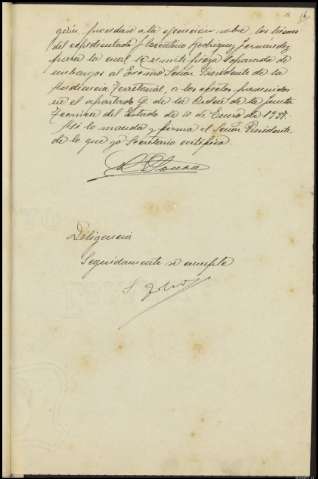 proceda a la ejecucion sobre los bienes
del expedientado Rodriguez Fernandez
para la cual remite pieza separada de
embargo al Excmo Señor Presidente de la
Audiencia Territorial, a los efectos prevenidos
en el apartado de la Orden de la Junta
Tecnica del Estado de 10 de Enero de 1937.
Asi lo manda y firma el Señor Presidente
de lo que yo Secretario certifico
Diligencia
Seguidamente se cumple